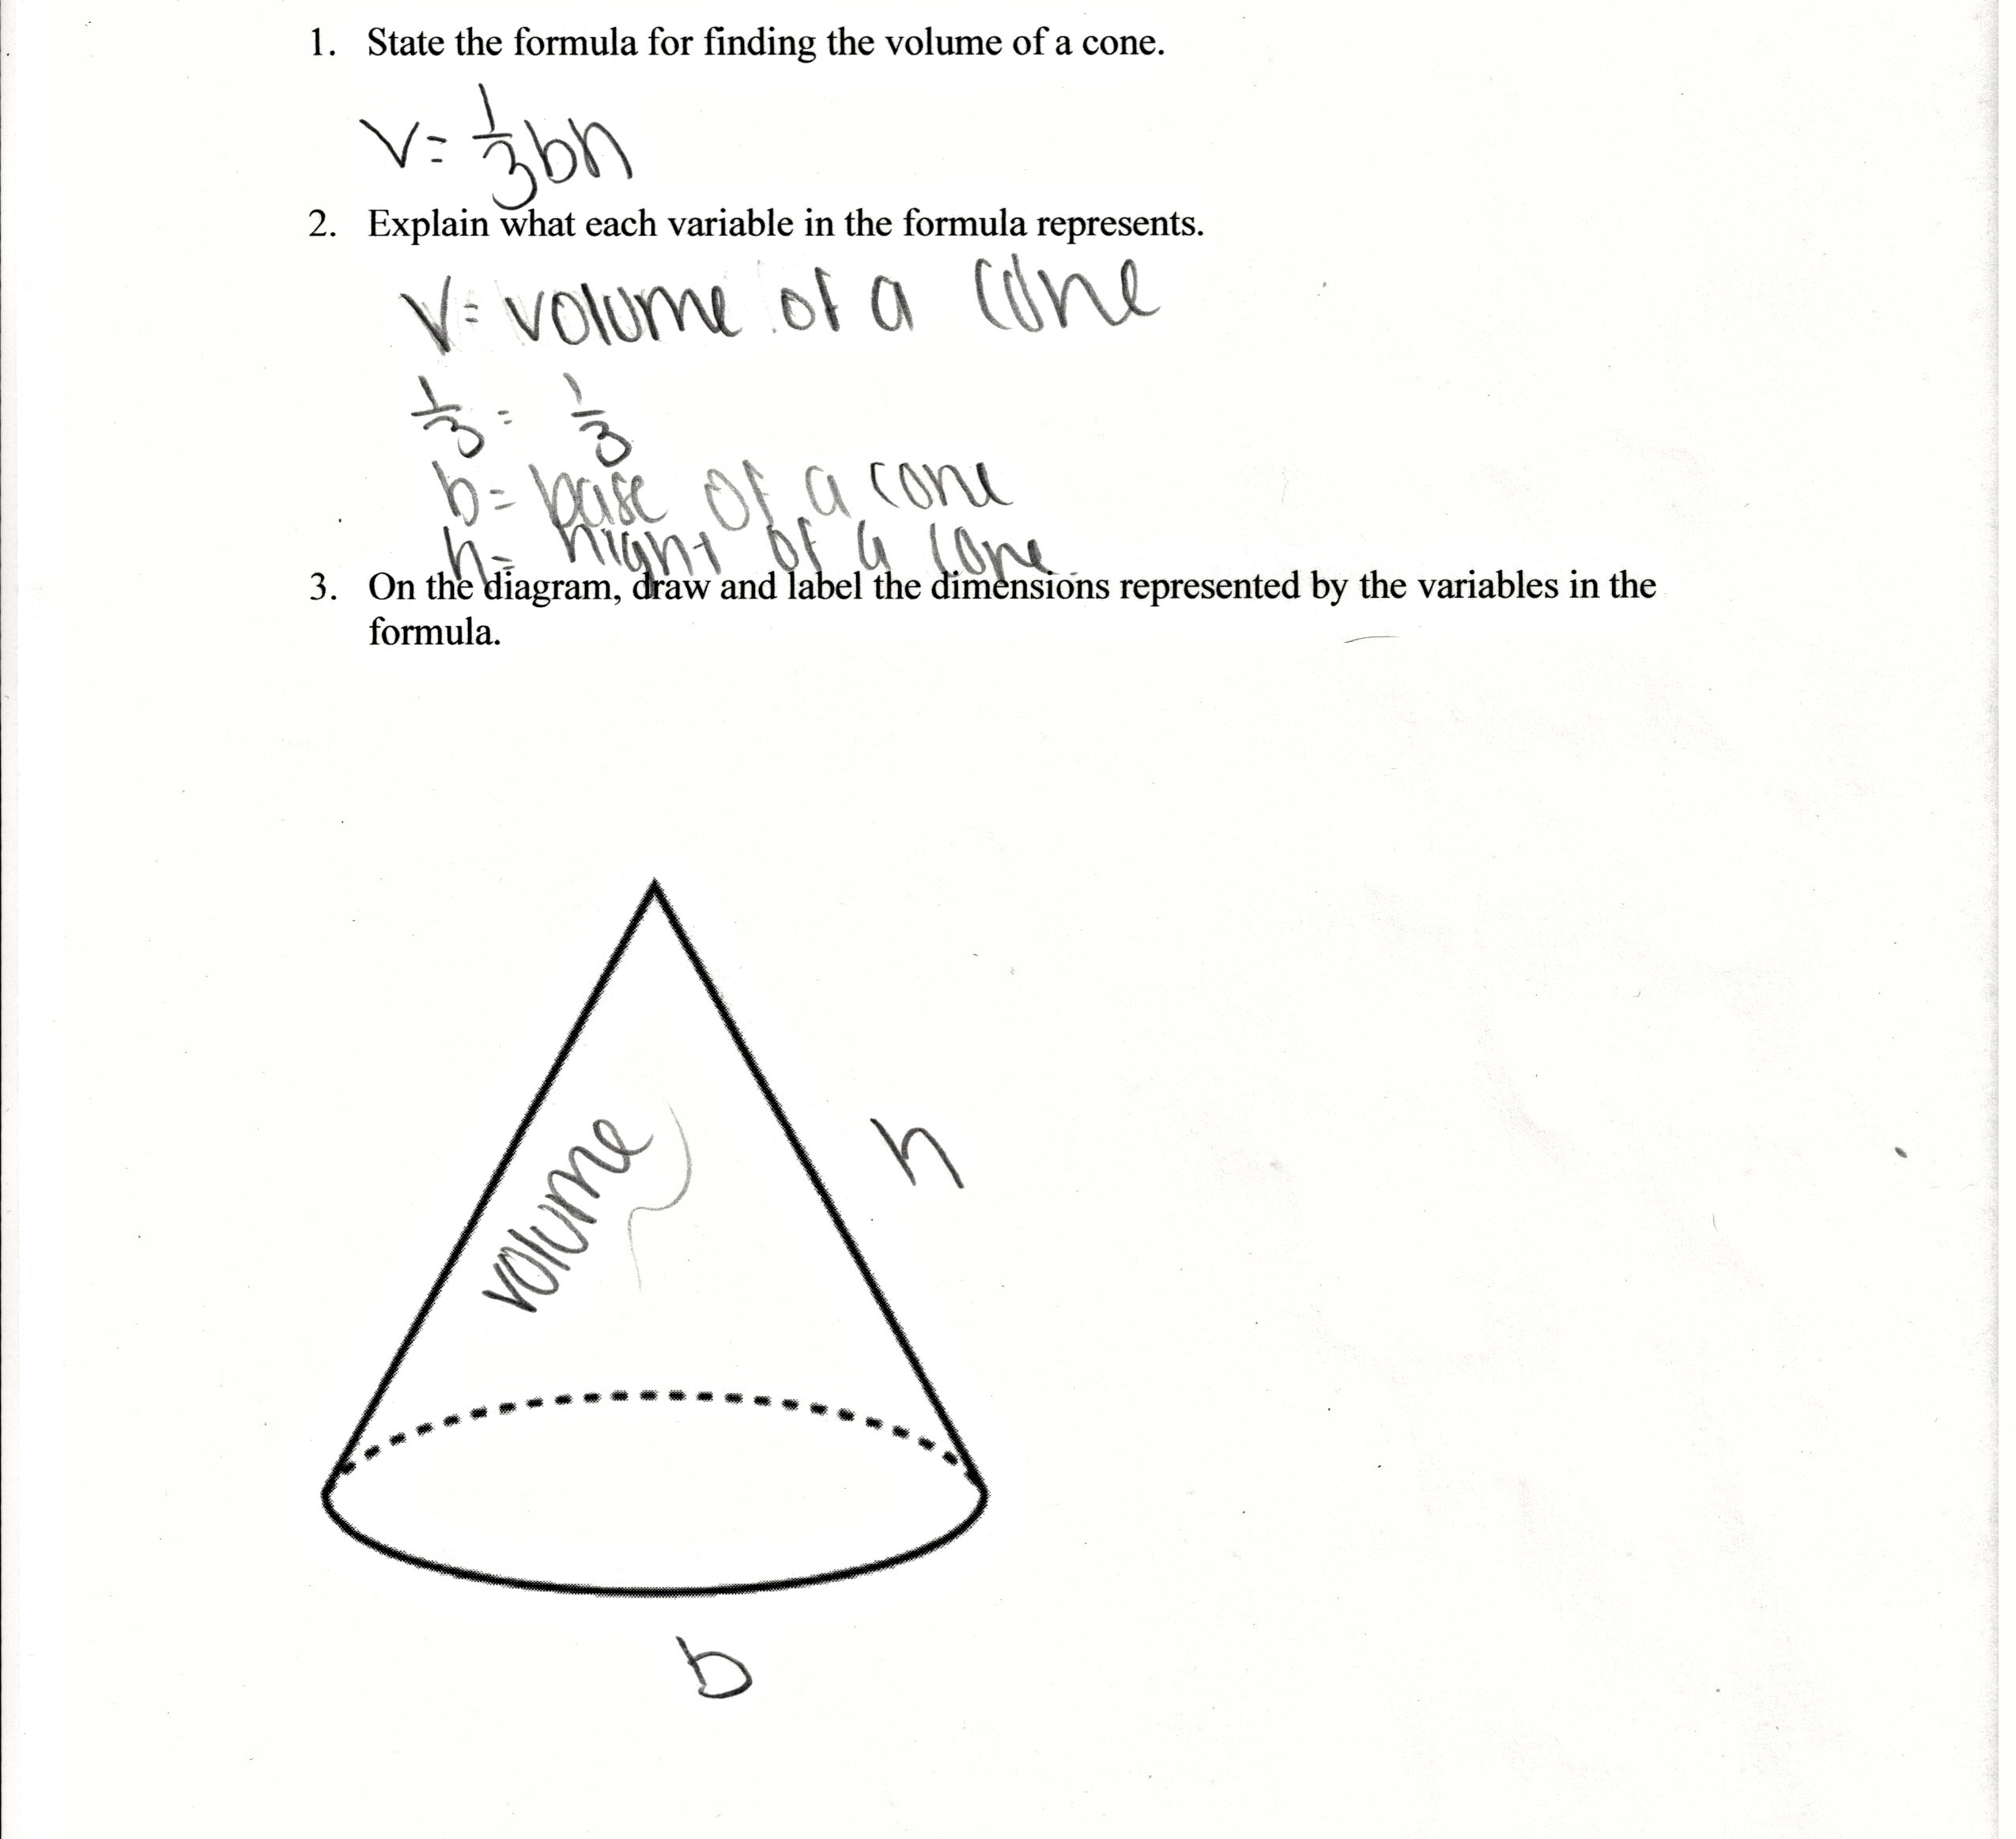 1. State the formula for finding the volume of a cone.
V = 1/3 bh
2. Explain what each variable in the formula represents.
V = volume of a cone
1/3 = 1/3
b = base of a cone
h = hight of a cone
3. On the diagram, draw and label the dimensions represented by the variables in the
formula.
volume
h
b